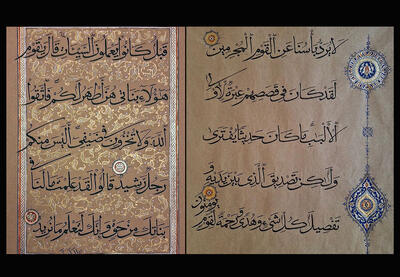 لا يرد بأسنا عن القوم المجرمين
لقد كان في قصصهم عبرة لأولي
الألباب ما كان حديثا يفترى
ولكن تصديق الذي بين يديه و
تفصيل كل شيء وهدى ورحمة لقوم يؤمنون
قبل كانوا يعملون السيئات قال يا قوم
هؤلاء بناتي هن أطهر لكم فاتقوا
الله ولا تخزون في ضيفي أليس منكم
رجل رشيد قالوا لقد علمت ما لنا في
بناتك من حق وإنك لتعلم ما نريد